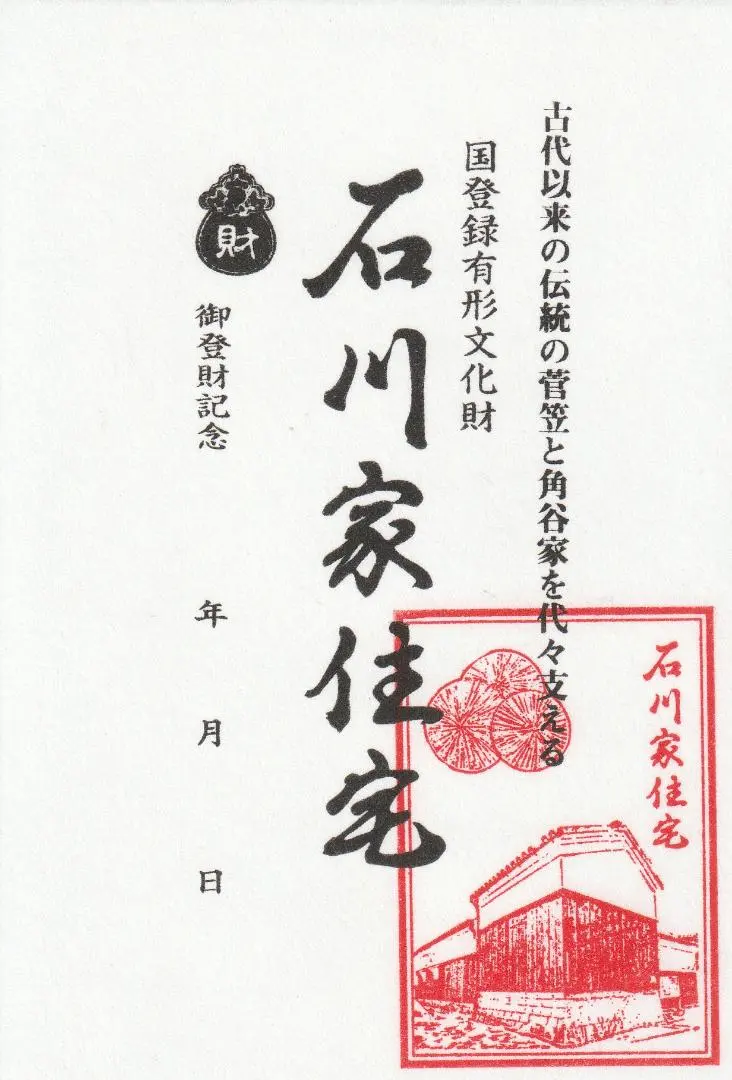 古代以来の伝統の菅笠と角谷家を代々支える
国登録有形文化財
石川家住宅
財
御登財記念
年 月 日
石川家住宅